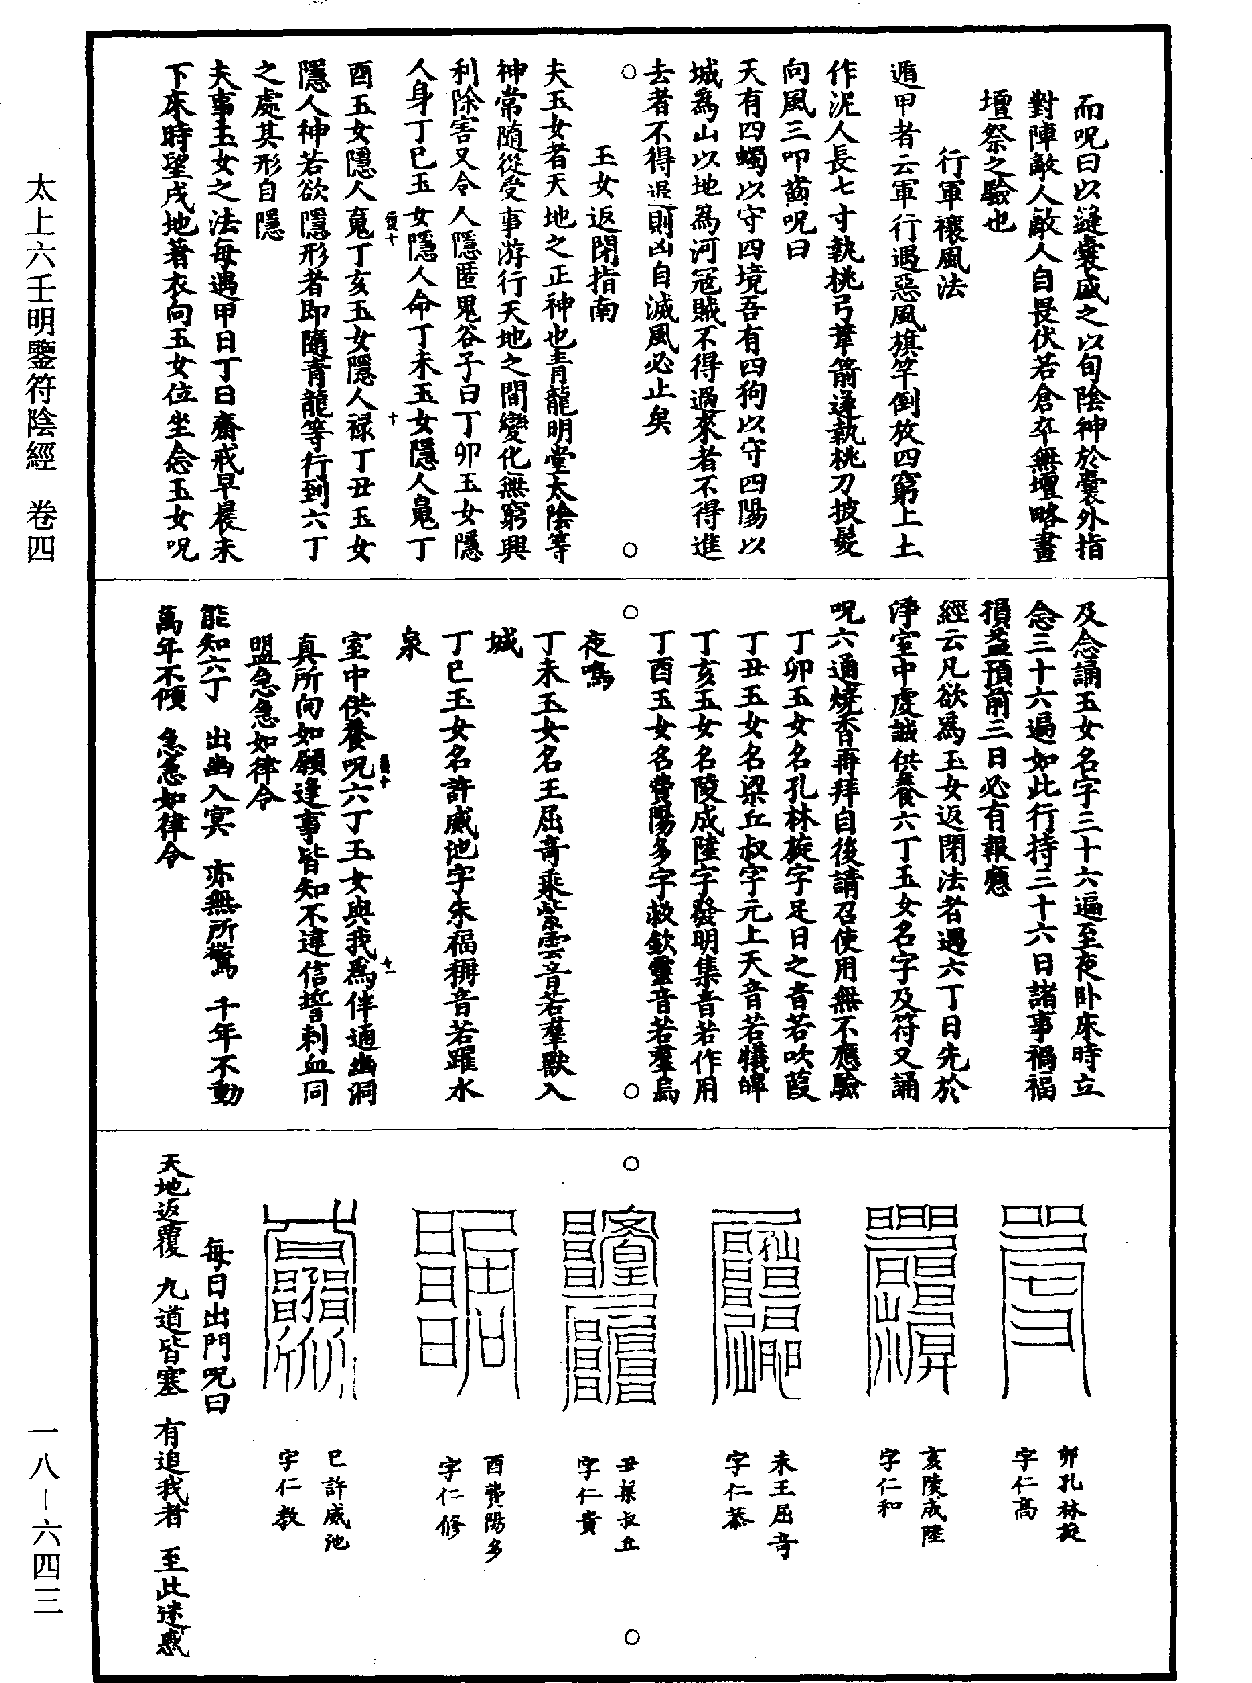 而呪曰以縫囊盛之以旬陰神於囊外指
對陣敵人敵人自畏伏若倉卒無壇略畫
壇祭之驗也
行軍禳風法
遁甲者云軍行遇惡風旗竿倒放四窮上土
作泥人長七寸執桃弓葦箭逆執桃刀披髮
向風三叩齒呪曰
天有四蠋以守四境吾有四狗以守四陽以
城爲山以地爲河冦賊不得過來者不得進
去者不得退則凶自滅風必止矣
玉女返閉指南
夫玉女者天地之正神也青龍明堂太陰等
神常隨從受事游行天地之間變化無窮興
利除害又令人隱匿鬼谷子曰丁卯玉女隱
人身丁巳玉女隱人命丁未玉女隱人鬼丁
酉玉女隱人寃丁亥玉女隱人禄丁丑玉女
隱人神若欲隱形者即隨青龍等行到六丁
之處其形自隱
夫事玉女之法每遇甲日丁日齋戒早晨未
下床時望戌地著衣向玉女位坐念玉女呪
及念誦玉女名字三十六遍至夜卧床時立
念三十六遍如此行持三十六日諸事禍福
損益預前三日必有報應
經云凡欲爲玉女返閉法者遇六丁日先於
淨室中虔誠供養六丁玉女名字及符又誦
呪六通燒香再拜自後請召使用無不應驗
丁卯玉女名孔林旋字足日之音若吹葭
丁丑玉女名梁丘叔字元上天音若犢
丁亥玉女名陵成陸字發明集音若作用
丁酉玉女名費陽多字救欽靈音若羣烏
夜鳴
丁未玉女名王屈奇乘紫雲音若羣獸入
城
丁巳玉女名許咸池字朱福稱音若躍水
泉
室中供養呪六丁玉女與我爲伴通幽洞
真所向如願逢事皆知不違信誓刺血同
盟急急如律令
能知六丁 出幽入冥 亦無所驚 千年不動
萬年不傾 急急如律令
卯孔林旋
字仁高
亥陵成陸
字仁和
未王屈奇
字仁恭
丑梁叔丘
字仁貴
酉費陽多
字仁修
巳許咸池
字仁敎
每日出門呪曰
天地返覆 九道皆塞 有追我者 至此迷惑
太上六壬明鑒符陰經 卷四
一八—六四三